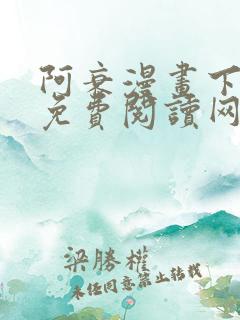 阿衰漫畫下
免費閱讀网
梁勝權
未经同意禁止转载